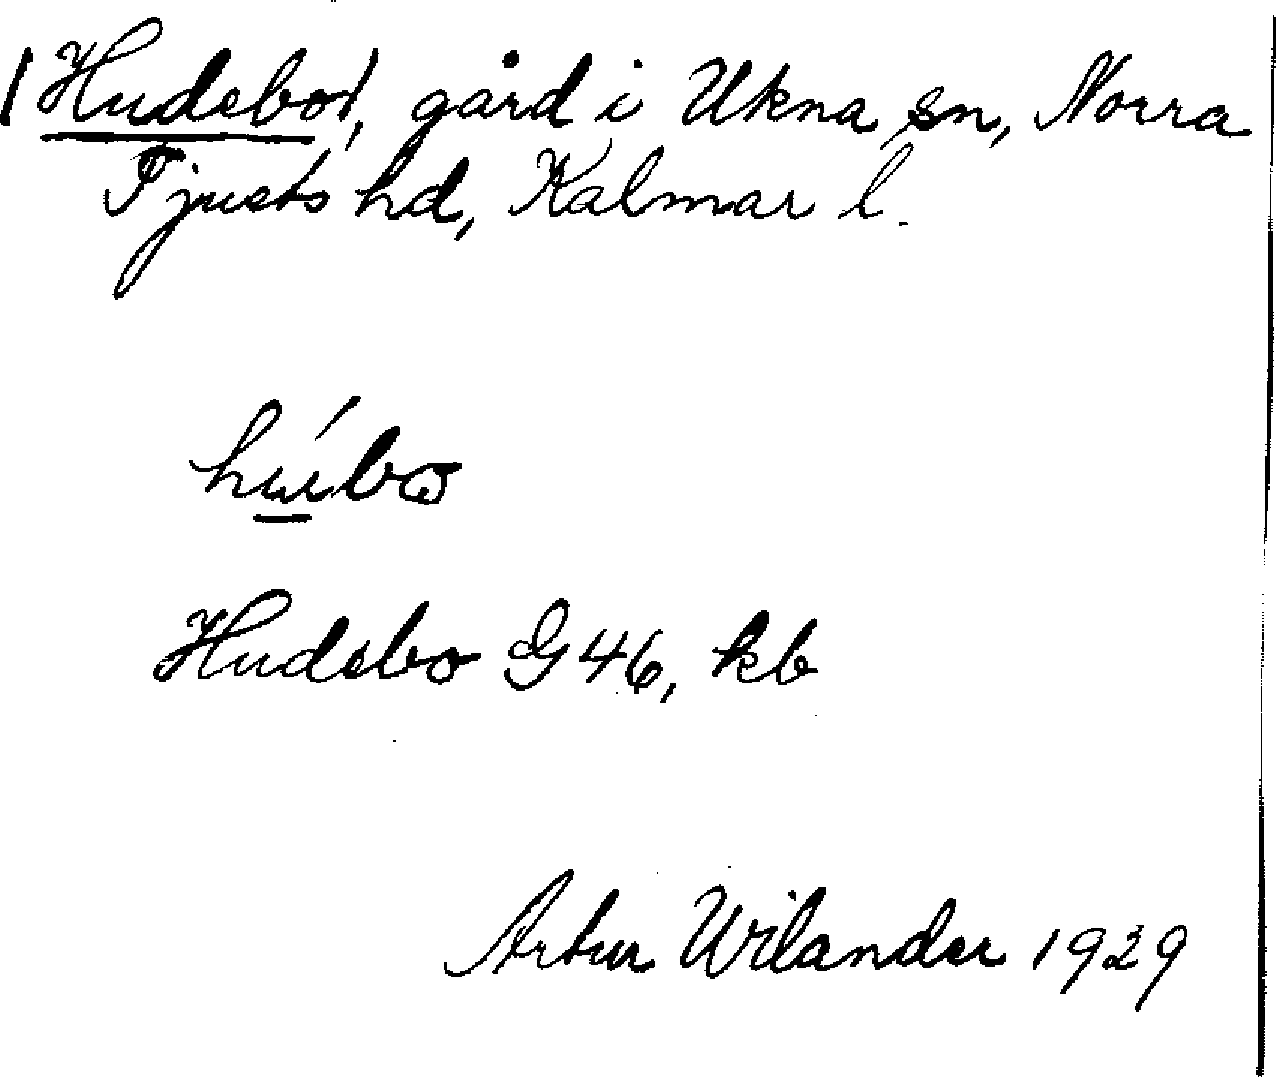 /Hudebo/, gård i Ukna sn, Norra
Tjusts hd, Kalmar l.
húbo
Hudebo G 46, kb
Artur Wilander 1929